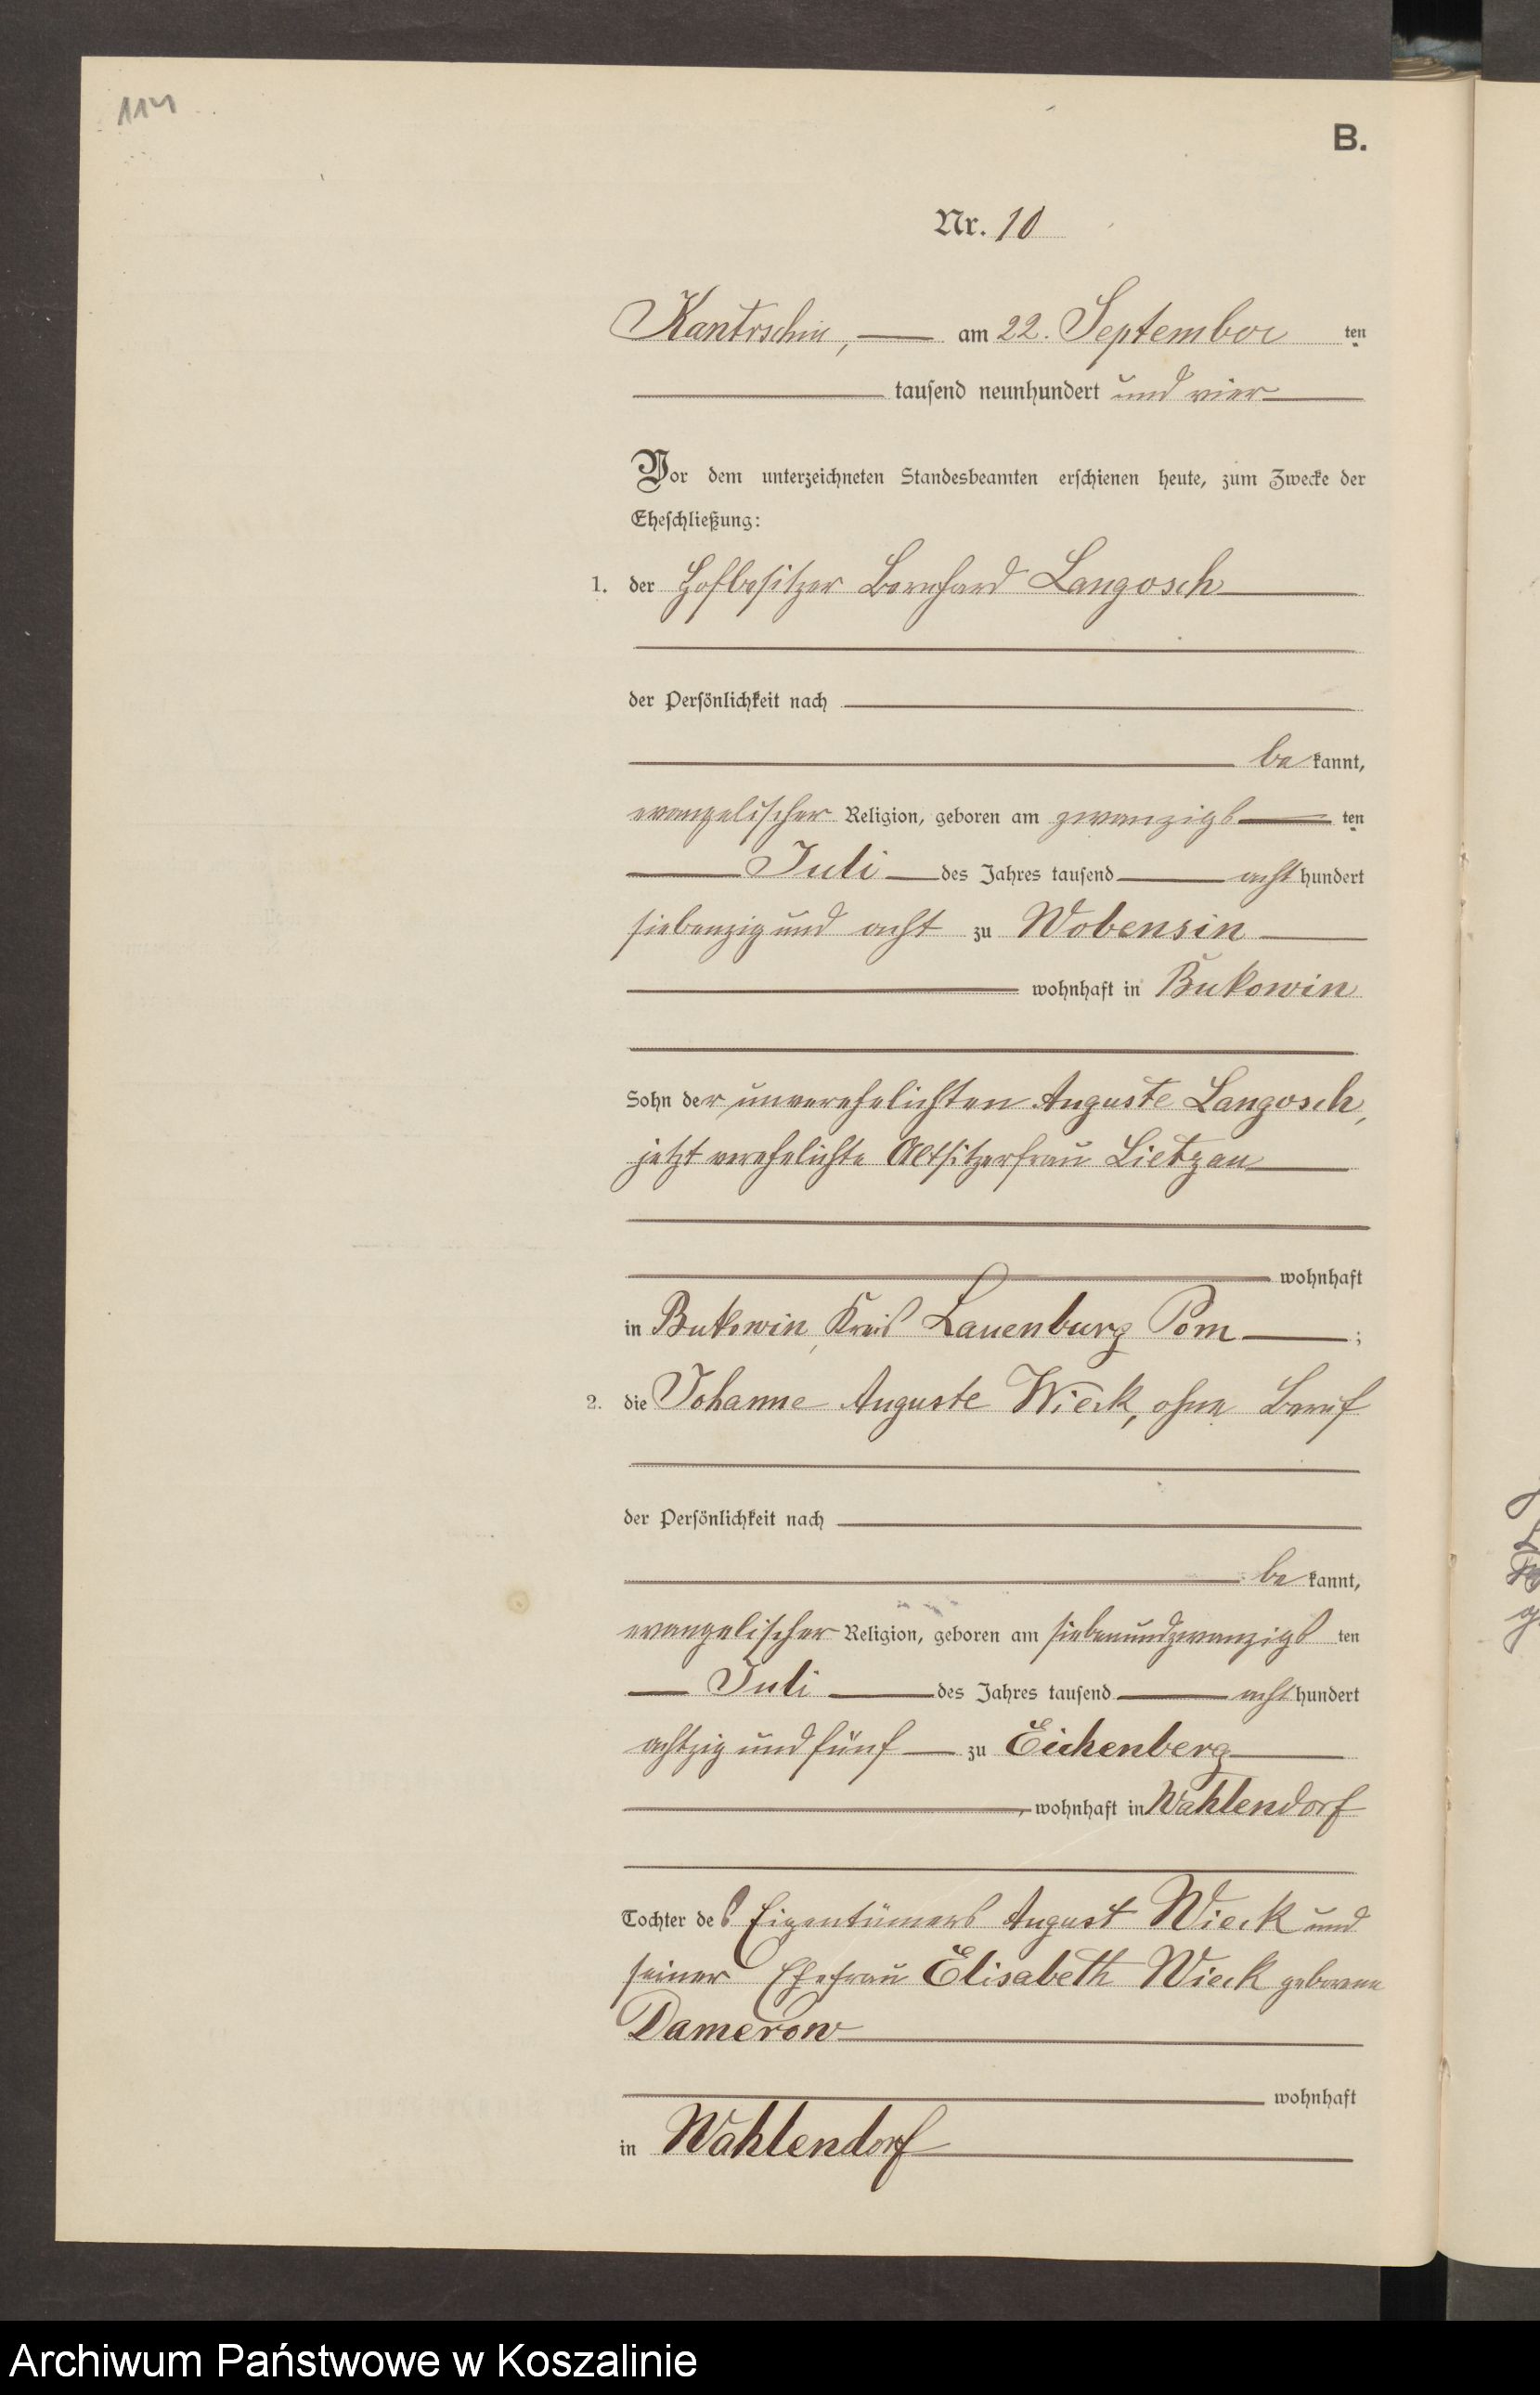 114
B.
Nr. 10
Kantrschin, am 22. September ten
tausend neunhundert und vier
Vor dem unterzeichneten Standesbeamten erschienen heute, zum Zwecke der
Eheschließung:
1. der Hofbesitzer Bernhard Langosch
der Persönlichkeit nach
be kannt,
evangelischer Religion, geboren am zwanzigs ten
Juli des Jahres tausend acht hundert
siebenzig und acht zu Wobensin
wohnhaft in Bukowin
Sohn der unverehelichten Auguste Langosch,
jetzt verehelichte Altsitzerfrau Lietzau
wohnhaft
in Bukowin, Kreis Lauenburg Pom ;
2. die Johanne Auguste Wieck, ohne Beruf
der Persönlichkeit nach
be kannt,
evangelischer Religion, geboren am siebenundzwanzigs ten
Juli des Jahres tausend acht hundert
achtzig und fünf zu Eichenberg
wohnhaft in Wahlendorf
Tochter des Eigentümers August Wieck und
seiner Ehefrau Elisabeth Wieck geborene
Damerow
wohnhaft
in Wahlendorf
Archiwum Państwowe w Koszalinie